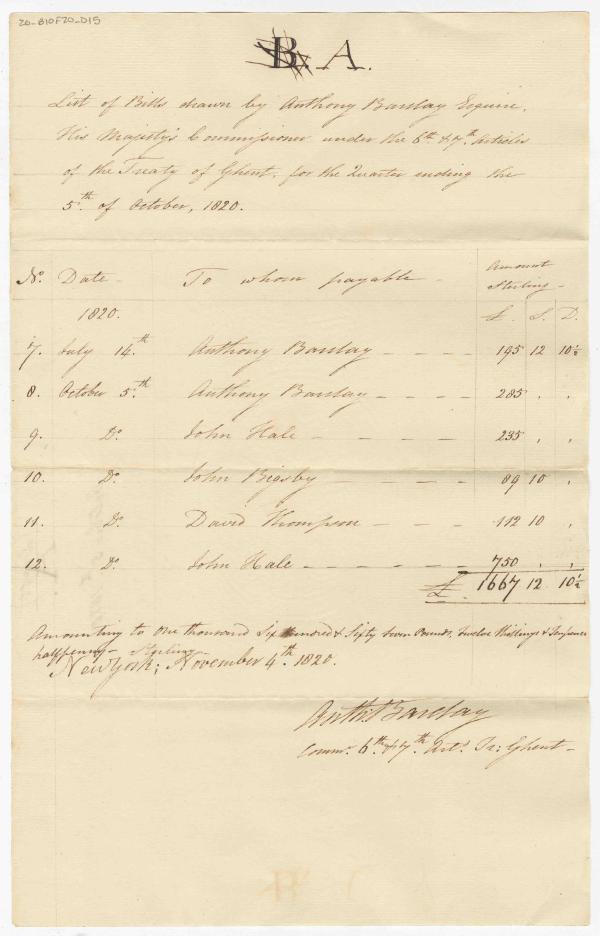 20-B10F20-D15
B. A.
List of Bills drawn by Anthony Barclay Esquire,
His Majesty's Commissioner under the 6th & 7th Articles
of the Treaty of Ghent; for the Quarter ending the
5th of October, 1820.
No. Date To whom payable Amount Sterling
1820. £. S. D.
7. July 14th Anthony Barclay 195 12 10½
8. October 5th Anthony Barclay 285 . .
9. Do. John Hale 235 . .
10. Do. John Bigsby 89 10 .
11. Do. David Thompson 112 10 .
12. Do. John Hale 750 . .
£ 1667 12 10½
Amounting to One thousand Six Hundred & Sixty Seven Pounds, Twelve Shillings & Tenpence
halfpenny Sterling
New York; November 4th 1820.
Anth. Barclay
Commr. 6th & 7th Arts. Tr: Ghent